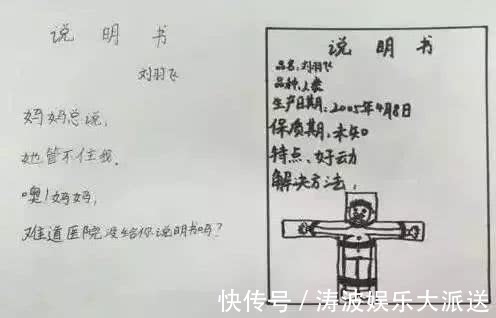 说明书
刘羽飞
妈妈总说，
她管不住我。
噢！妈妈，
难道医院没给你说明书吗？
说明书
品名：刘羽飞
品种：人类
生产日期：2005年4月8日
保质期：未知
特点：好动
解决方法：
快传号／涛波娱乐大派送